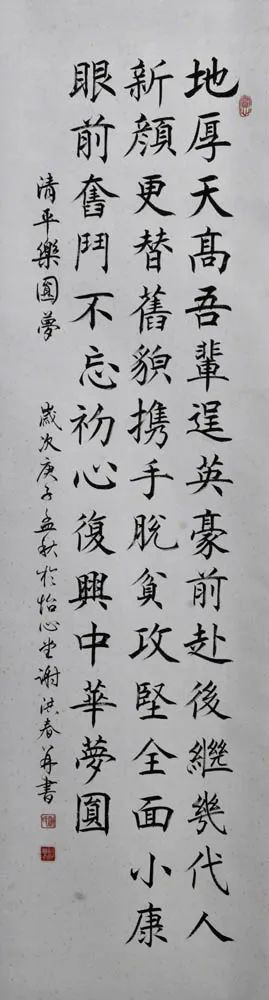 地厚天高吾輩逞英豪前赴後繼幾代人
新顔更替舊貌携手脫貧攻堅全面小康
眼前奮鬥不忘初心復興中華夢圓
清平樂圓夢 歲次庚子孟秋於怡心堂謝洪春并書